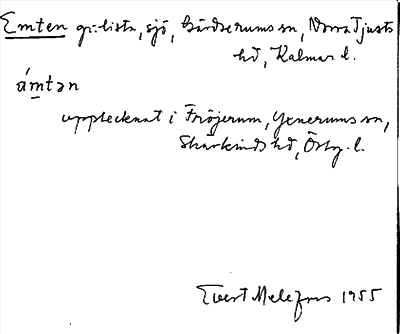 Emten gr: lista, sjö, Gärdserums sn, Norra Tjusts
hd, Kalmar l.
ámtən
upptecknat i Fröjerum, Yxnerums sn,
Skärkinds hd, Östg. l.
Evert Melefors 1955